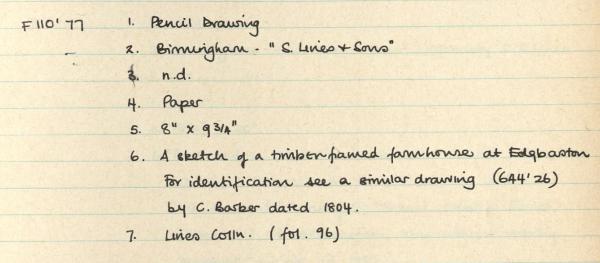 F110'77 1. Pencil Drawing
2. Birmingham - "S. Lines & Sons"
3. n.d.
4. Paper
5. 8" x 9 3/4"
6. A sketch of a timberframed farmhouse at Edgbaston
For identification see a similar drawing (644'26)
by C. Barber dated 1804.
7. Lines Colln. (fol. 96)